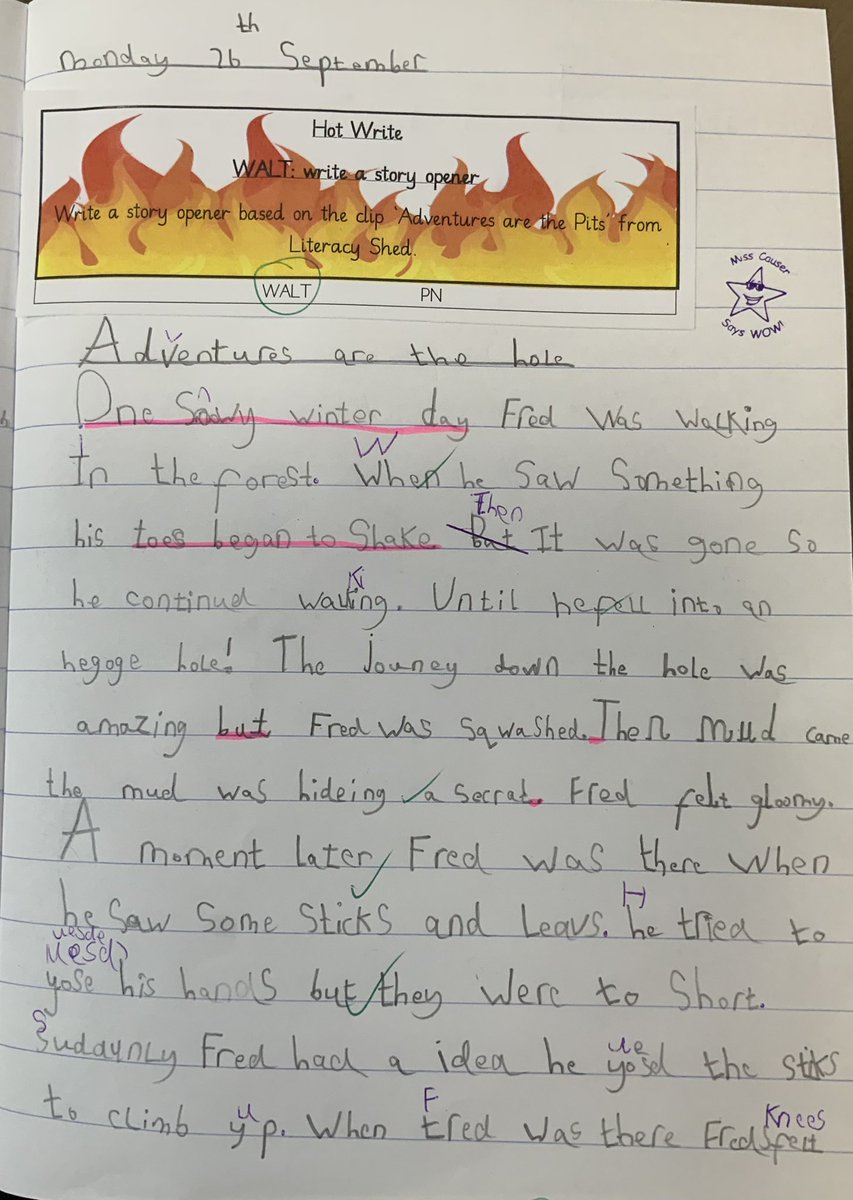 th
Monday 26 September
Hot Write
WALT: write a story opener
Write a story opener based on the clip 'Adventures are the Pits' from
Literacy Shed.
WALT PN
Miss Causer
Says WOW!
v
Adventures are the hole
n
One Snowy winter day Fred was walking
W
In the forest. When he saw something
Then
his toes began to shake But It was gone so
Ki
he continued walking. Until he fell into an
hegoge hole! The journey down the hole was
amazing but Fred was sqwashed. Then mud came
the mud was hideing a secrat. Fred felt gloomy.
A moment later, Fred was there when
H
he saw some sticks and leavs. he tried to
uesde
uesd
yose his hands but they were to short.
S
suddaynly Fred had a idea he yosed the stiks
ue
u F Knees
to climb yp. When fred was there Freds felt